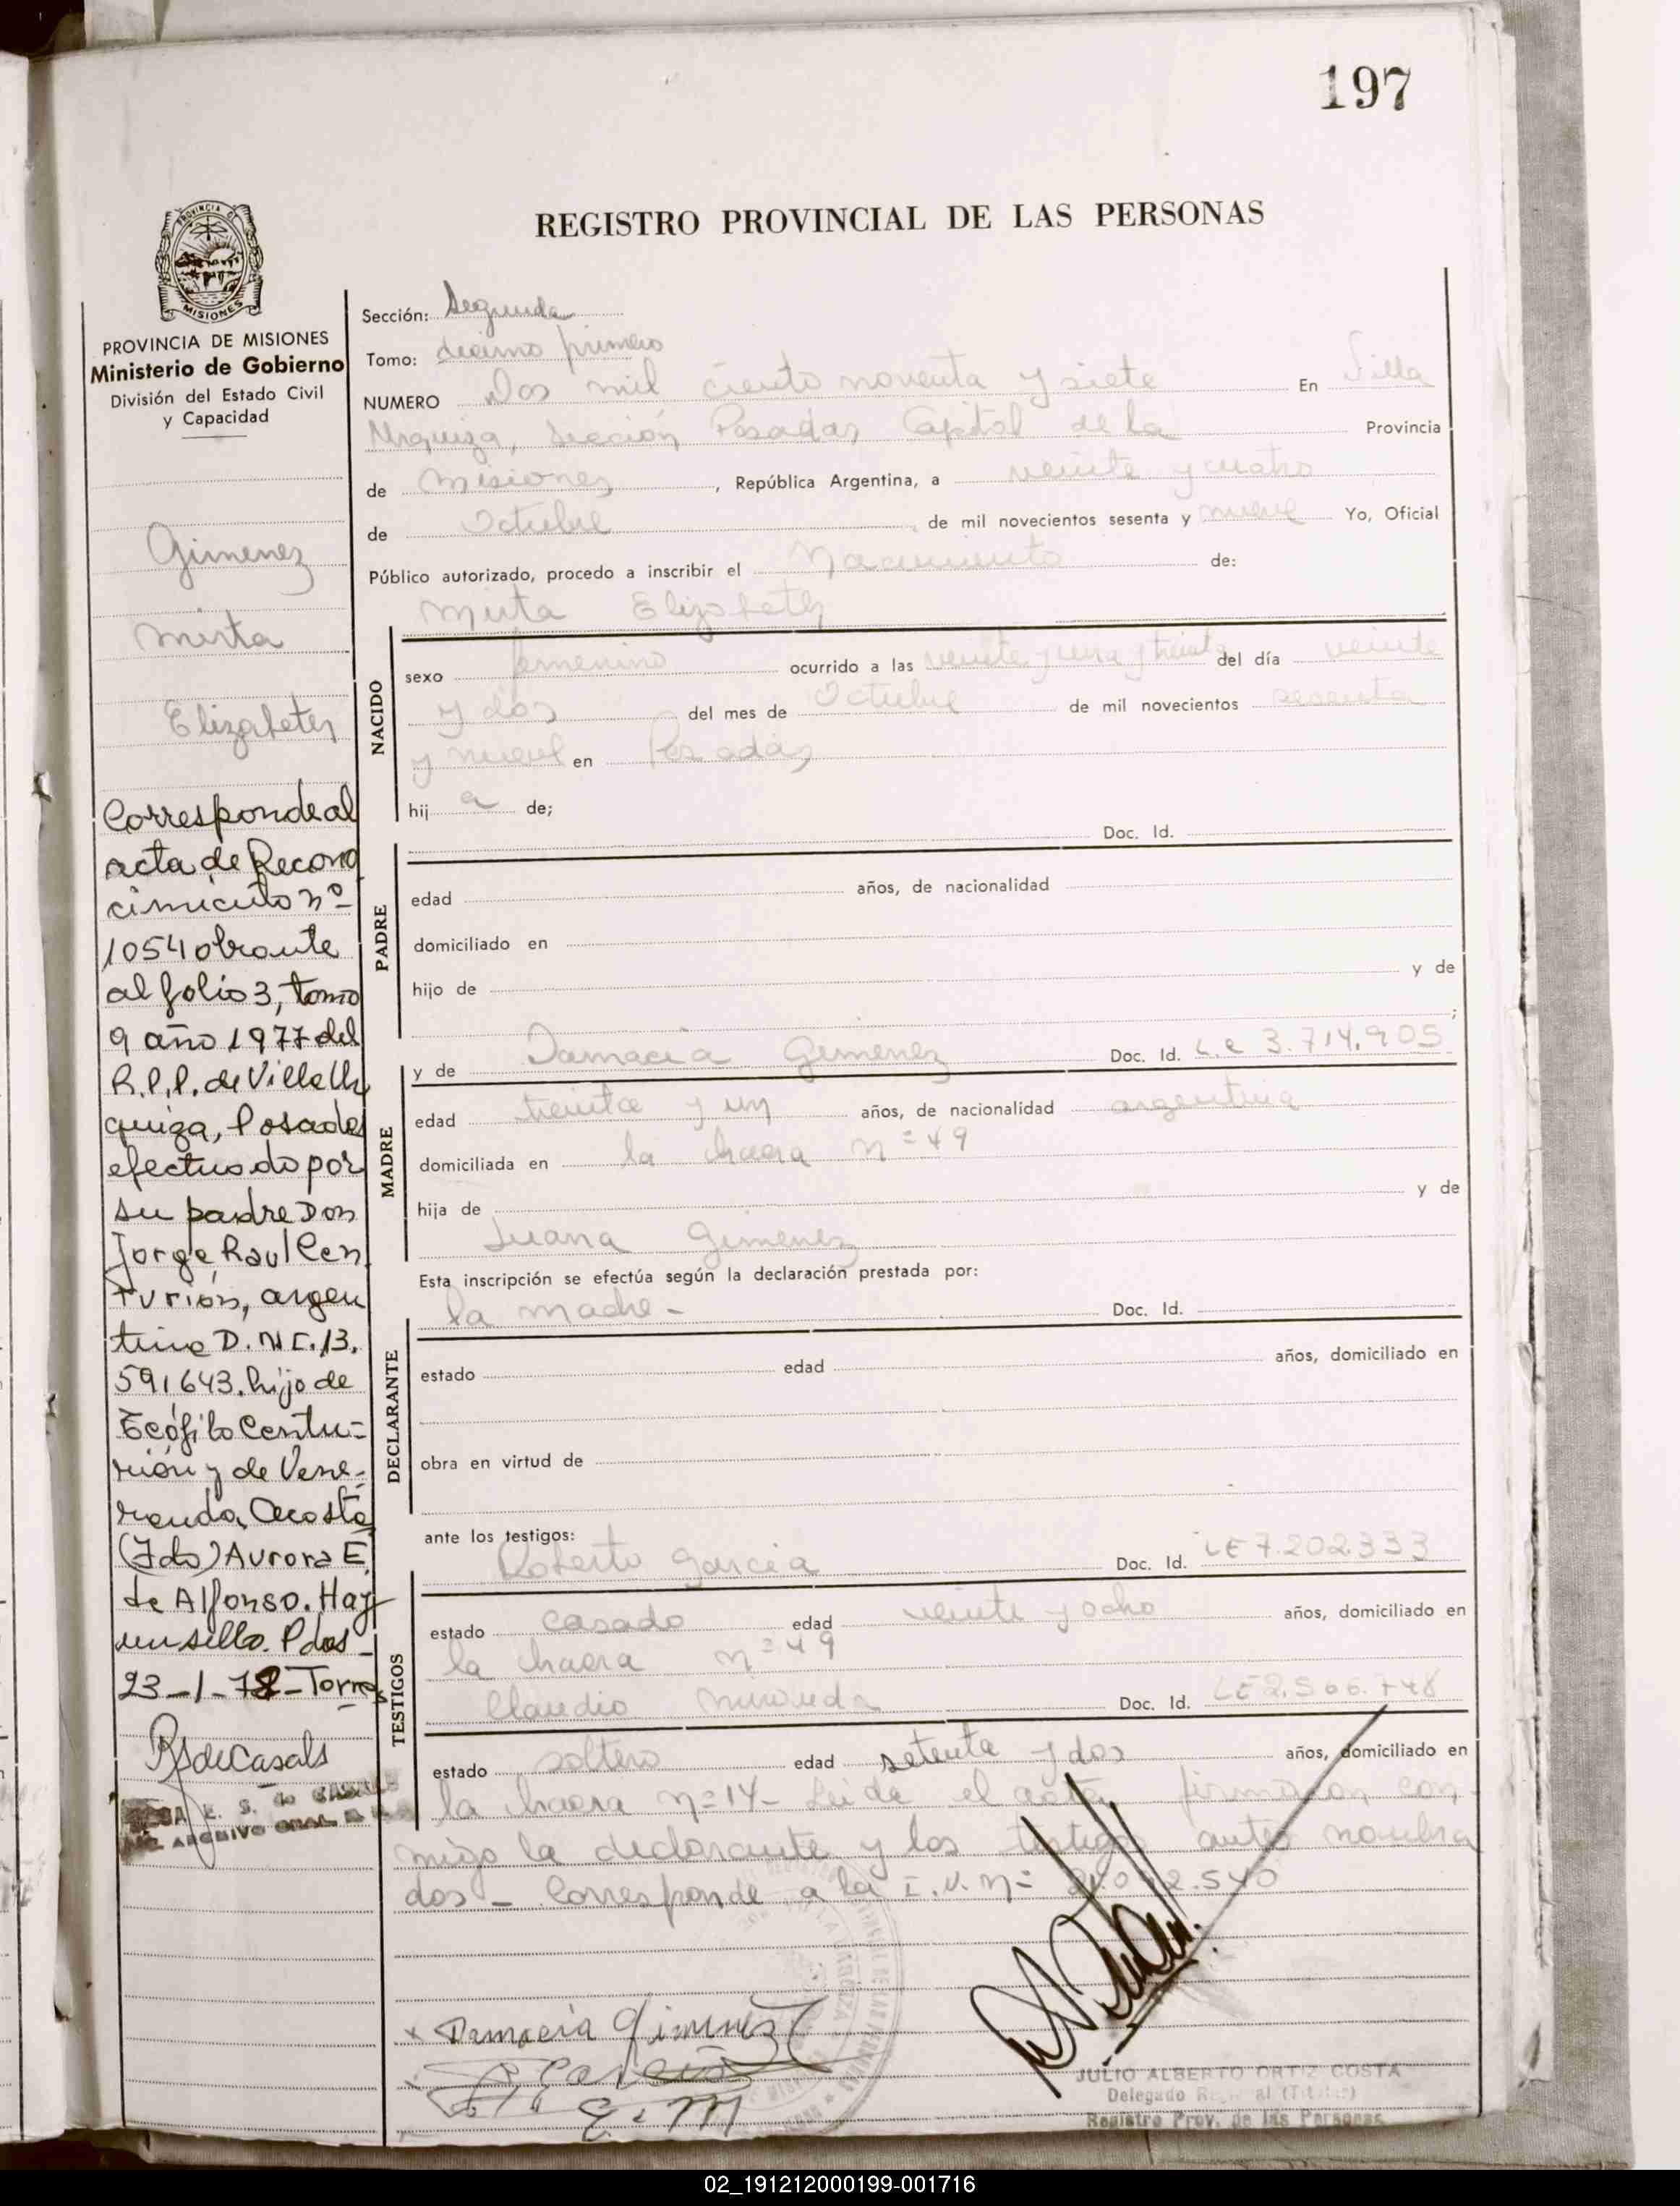 197
REGISTRO PROVINCIAL DE LAS PERSONAS
PROVINCIA DE
MISIONES
PROVINCIA DE MISIONES
Ministerio de Gobierno
División del Estado Civil
y Capacidad
Gimenez
Mirta
Elizabeth
Corresponde al
acta de Recono
cimiento nº
1054 obrante
al folio 3, tomo
9 año 1977 del
R.P.P. de Villa Ur
quiza, Posadas
efectuado por
su padre Don
Jorge Raul Cen
turión, argen
tino D.N.I. 13.
591643. hijo de
Teófilo Centu=
rión y de Vene-
randa Acosta
(Fdo) Aurora E.
de Alfonso. Hay
un sello. Pdas-
23-1-78-Torres
RSdeCasals
E. S. de CASALS
ARCHIVO GRAL
Sección: Segunda
Tomo: decimo primero
NUMERO Dos mil ciento noventa y siete En Villa
Urquiza, Sección Posadas Capital de la Provincia
de Misiones, República Argentina, a veinte y cuatro
de Octubre de mil novecientos sesenta y nueve Yo, Oficial
Público autorizado, procedo a inscribir el Nacimiento de:
Mirta Elizabeth
NACIDO
sexo femenino ocurrido a las veinte y una y treinta del día veinte
y dos del mes de Octubre de mil novecientos sesenta
y nueve en Posadas
hija de;
Doc. Id.
PADRE
edad años, de nacionalidad
domiciliado en
hijo de y de
;
y de Damacia Gimenez Doc. Id. L.C 3.714.905
MADRE
edad treinta y un años, de nacionalidad argentina
domiciliada en la chacra nº 49
hija de y de
Juana Gimenez
Esta inscripción se efectúa según la declaración prestada por:
la madre - Doc. Id.
DECLARANTE
estado edad años, domiciliado en
obra en virtud de
ante los testigos:
Roberto Garcia Doc. Id. LE 7.202333
TESTIGOS
estado casado edad veinte y ocho años, domiciliado en
la chacra nº 49
Claudio Doc. Id.
estado soltero edad setenta y dos años, domiciliado en
la chacra nº 14- Leida el acta, firmaron con-
migo la declarante y los testigos antes nombra
dos - Corresponde a la I.V. nº
x Damacia Gimenez
C. M
JULIO ALBERTO ORTIZ COSTA
Delegado (Titular)
Registro Prov. de las Personas
02_191212000199-001716